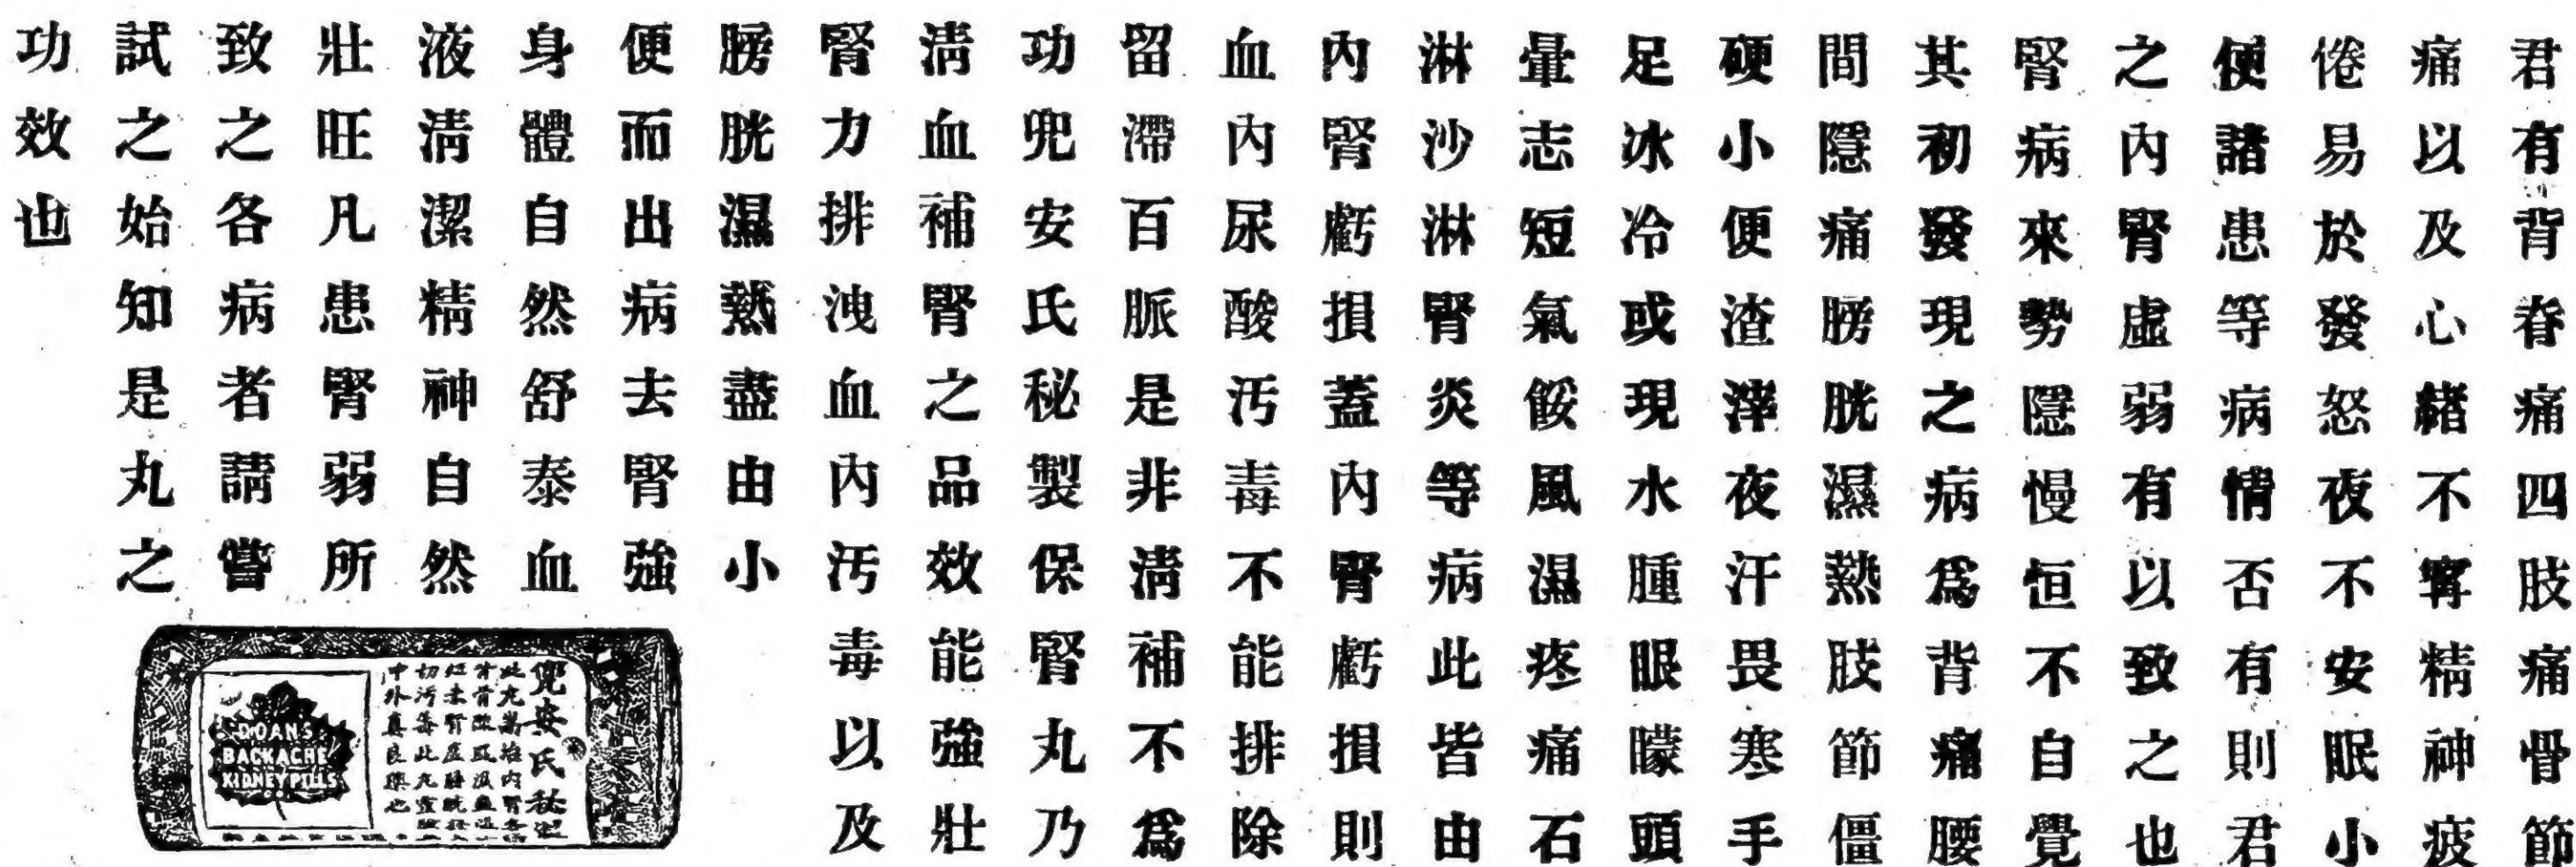 君有背脊痛四肢痛骨節
痛以及心緒不寧精神疲
倦易於發怒夜不安眠小
便諸患等病情否有則君
之內腎虛弱有以致之也
腎病來勢隱慢恒不自覺
其初發現之病為背痛腰
間隱痛膀胱濕熱肢節僵
硬小便渣滓夜汗畏寒手
足冰冷或現水腫眼矇頭
暈志短氣餒風濕疼痛石
淋沙淋腎炎等病此皆由
內腎虧損蓋內腎虧損則
血內尿酸污毒不能排除
留滯百脈是非清補不為
功兜安氏秘製保腎丸乃
清血補腎之品效能強壯
腎力排洩血內污毒以及
膀胱濕熱盡由小
便而出病去腎強
身體自然舒泰血
液清潔精神自然
壯旺凡患腎弱所
致之各病者請嘗
試之始知是丸之
功效也
兜安氏秘
DOAN'S
BACKACHE
KIDNEY PILLS